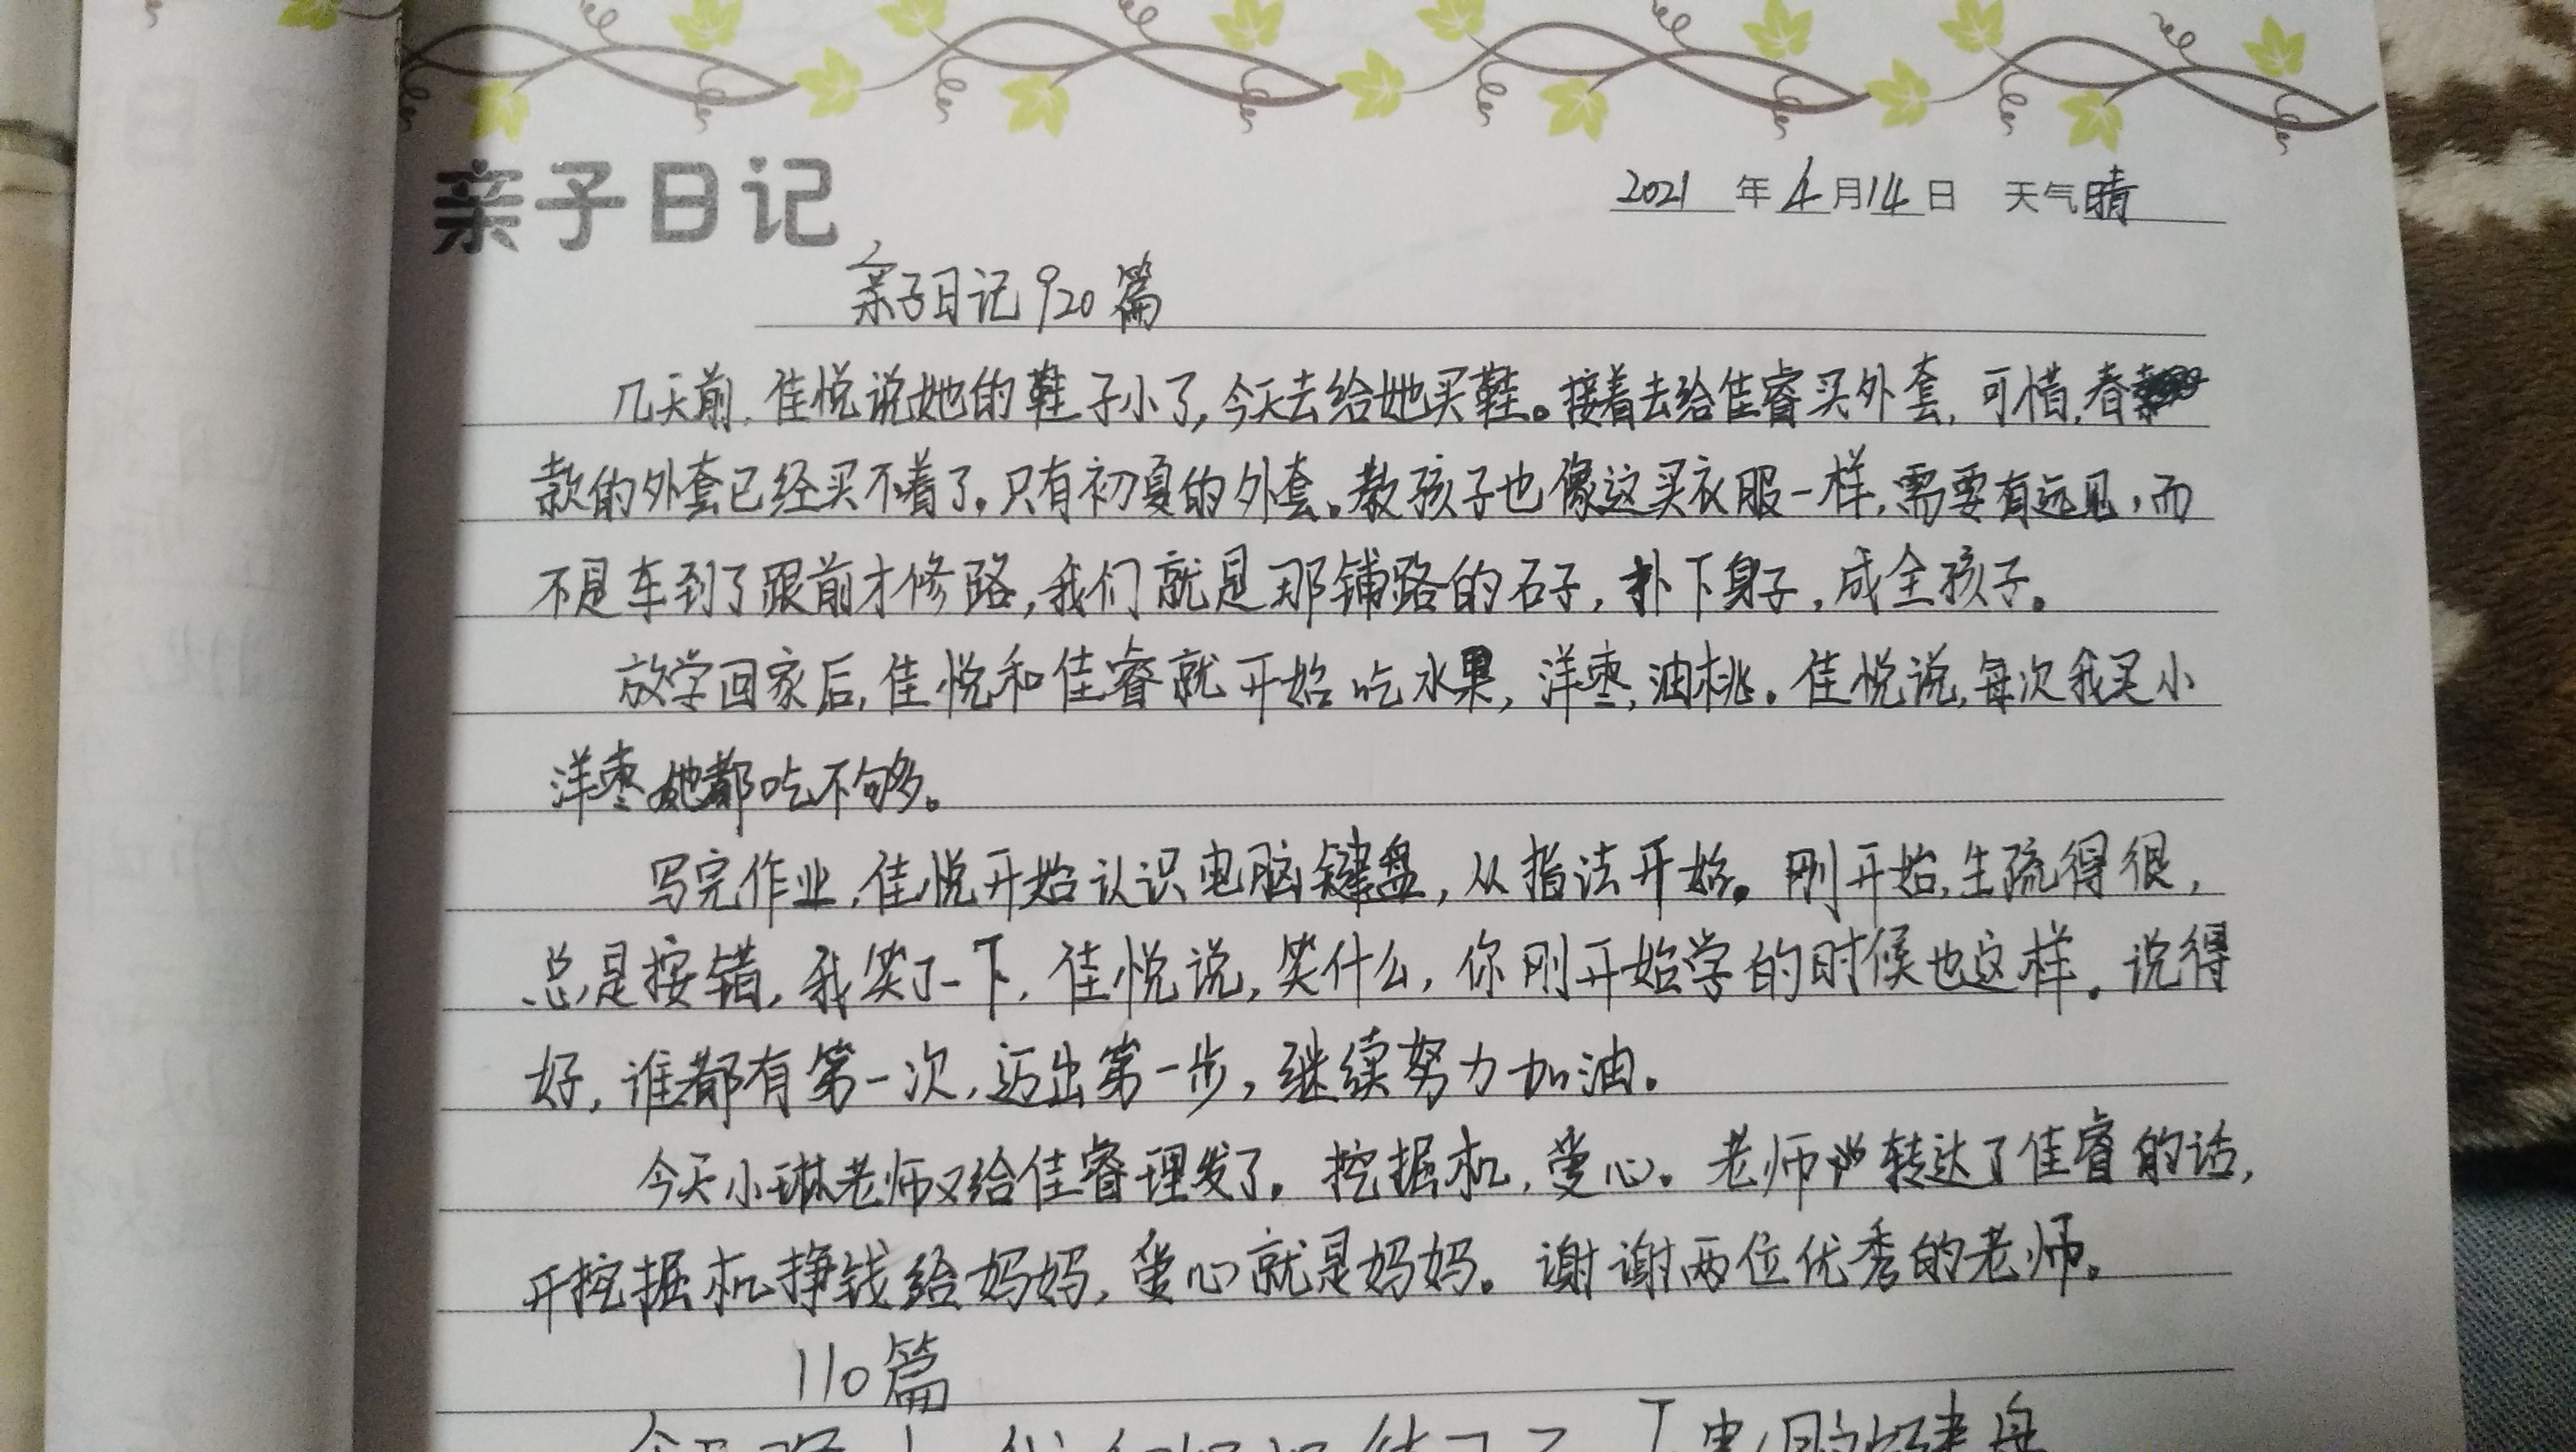 亲子日记
2021年4月14日 天气晴
亲子日记920篇
几天前,佳悦说她的鞋子小了,今天去给她买鞋。接着去给佳睿买外套,可惜,春
款的外套已经买不着了。只有初夏的外套。教孩子也像这买衣服一样,需要有远见,而
不是车到了跟前才修路,我们就是那铺路的石子,扑下身子,成全孩子。
放学回家后,佳悦和佳睿就开始吃水果,洋枣,油桃。佳悦说,每次我买小
洋枣她都吃不够。
写完作业,佳悦开始认识电脑键盘,从指法开始。刚开始,生疏得很,
总是按错,我笑了一下,佳悦说,笑什么,你刚开始学的时候也这样。说得
好,谁都有第一次,迈出第一步,继续努力加油。
今天小琳老师又给佳睿理发了。挖掘机,爱心。老师转达了佳睿的话,
开挖掘机挣钱给妈妈,爱心就是妈妈。谢谢两位优秀的老师。
110篇